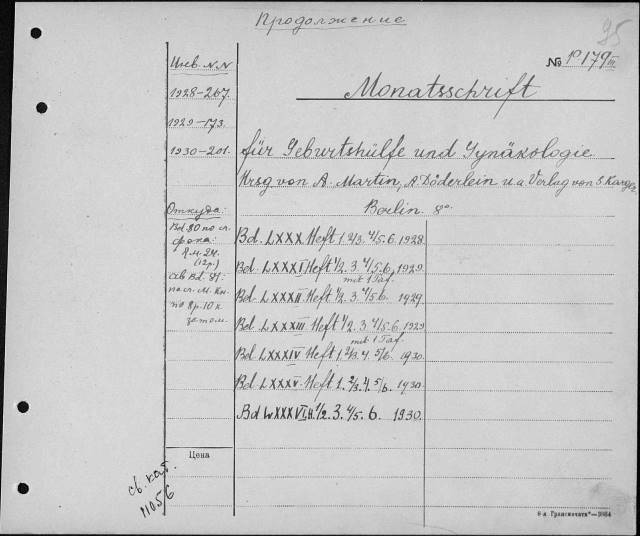 Продолжение
95
Инв. N.N
№ р 179 III
1928-267.
Monatsschrift
1929-173.
1930-201.
für Geburtshülfe und Gynäkologie.
Hrsg von A. Martin, A Döderlein u.a. Verlag von S. Karger
Откуда:
Berlin. 8º.
Bd. 80 по сл.
фока:
Bd. LXXX Heft 1. 2/3. 4/5. 6. 1928.
Bd. LXXXI Heft 1/2. 3. 4/5. 6. 1929.
mit 1 Taf.
(12р.)
Bd. LXXXII Heft 1/2. 3. 4/5. 6. 1929.
Bd. LXXXIII Heft 1/2. 3. 4/5. 6. 1929
mit 1 Taf.
Bd. LXXXIV Heft 1. 2/3. 4. 5/6. 1930.
Bd. LXXXV Heft 1. 2/3. 4. 5/6. 1930.
Bd LXXXVI H. 1/2. 3. 4/5. 6. 1930.
Цена
св. кат.
11056
6-я „Транспечать“—3984